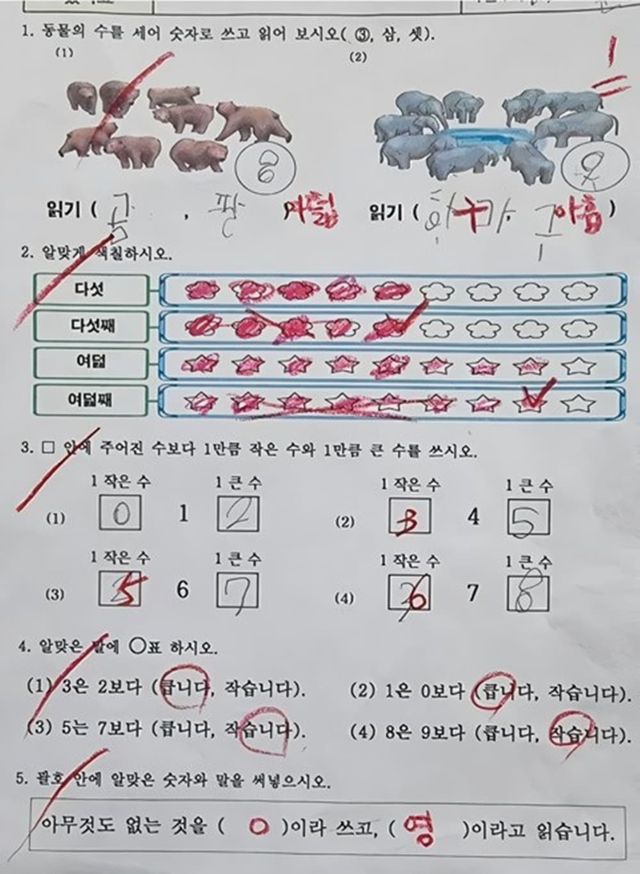 1. 동물의 수를 세어 숫자로 쓰고 읽어 보시오( ③, 삼, 셋).
(1) (2)
8 9
읽기 ( 곰 , 팔 ) 여덟 읽기 ( , 구 아홉 )
2. 알맞게 색칠하시오.
다섯
다섯째
여덟
여덟째
3. □ 안에 주어진 수보다 1만큼 작은 수와 1만큼 큰 수를 쓰시오.
1 작은 수 1 큰 수 1 작은 수 1 큰 수
(1) 0 1 2 (2) 3 4 5
1 작은 수 1 큰 수 1 작은 수 1 큰 수
(3) 5 6 7 (4) 6 7 8
4. 알맞은 말에 ○표 하시오.
(1) 3은 2보다 (큽니다, 작습니다). (2) 1은 0보다 (큽니다, 작습니다).
(3) 5는 7보다 (큽니다, 작습니다). (4) 8은 9보다 (큽니다, 작습니다).
5. 괄호 안에 알맞은 숫자와 말을 써넣으시오.
아무것도 없는 것을 ( 0 )이라 쓰고, ( 영 )이라고 읽습니다.